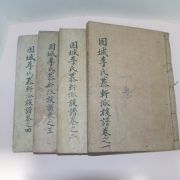 固城李氏慕軒派族譜卷之一
固城李氏慕軒派族譜卷之二
固城李氏慕軒派族譜卷之三
固城李氏慕軒派族譜卷之四